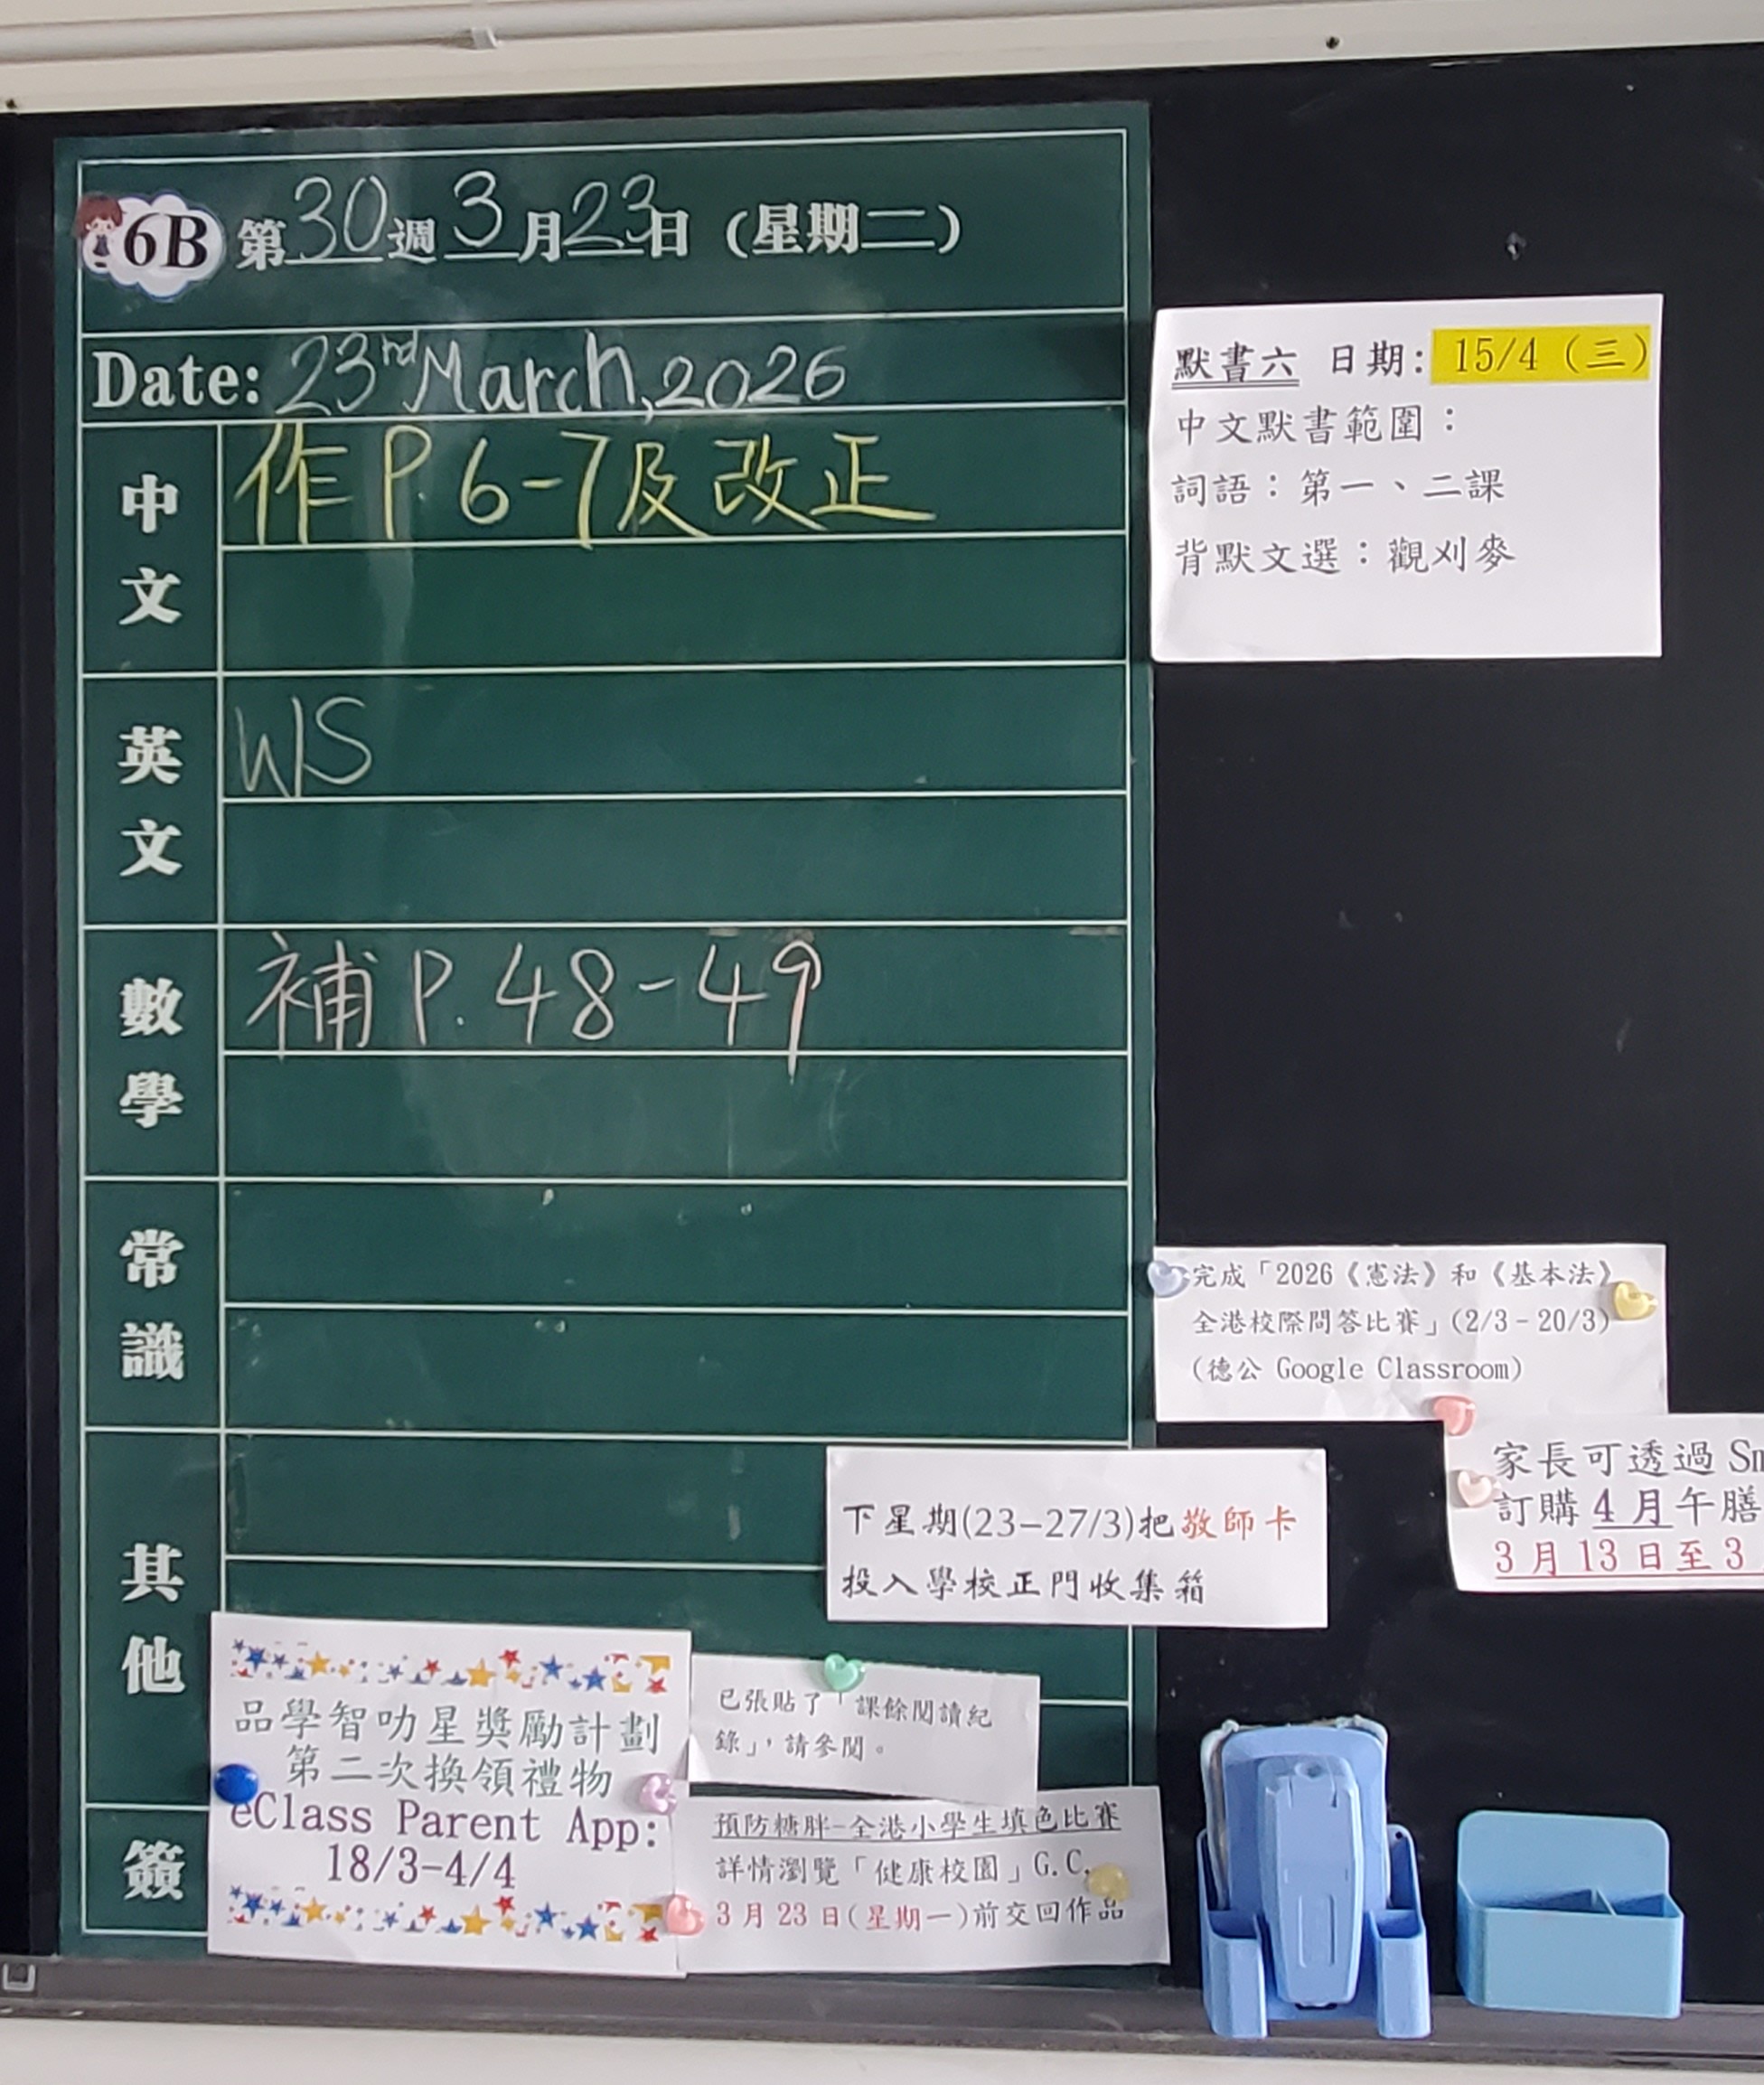 6B 第30週3月23日（星期二）
Date: 23rd March, 2026
中文
作P.6-7及改正
英文
W/S
數學
補P.48-49
常識
其他
簽
默書六 日期: 15/4（三）
中文默書範圍：
詞語：第一、二課
背默文選：觀刈麥
完成「2026《憲法》和《基本法》
全港校際問答比賽」(2/3–20/3)
(德公 Google Classroom)
家長可透過 Sm
訂購 4月午膳
3月13日至3
下星期(23–27/3)把敬師卡
投入學校正門收集箱
品學智叻星獎勵計劃
第二次換領禮物
eClass Parent App:
18/3-4/4
已張貼了「課餘閱讀紀
錄」，請參閱。
預防糖胖-全港小學生填色比賽
詳情瀏覽「健康校園」G.C.
3月23日(星期一)前交回作品